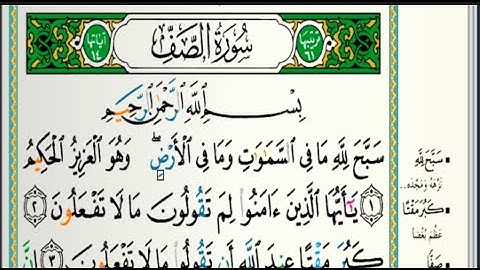 ترتيبها ٦١
سُورَةُ الصَّفِّ
آياتها ١٤
بِسْمِ اللَّهِ الرَّحْمَٰنِ الرَّحِيمِ
سَبَّحَ لِلَّهِ مَا فِي السَّمَٰوَٰتِ وَمَا فِي الْأَرْضِ ۖ وَهُوَ الْعَزِيزُ الْحَكِيمُ
﴿١﴾ يَٰٓأَيُّهَا الَّذِينَ ءَامَنُوا لِمَ تَقُولُونَ مَا لَا تَفْعَلُونَ ﴿٢﴾
كَبُرَ مَقْتًا عِندَ اللَّهِ أَن تَقُولُوا مَا لَا تَفْعَلُونَ ﴿٣﴾ إِنَّ
▪ سَبَّحَ لِلَّهِ
نزّهه ومجّده..
▪ كَبُرَ مَقْتًا
عظم بُغضا
▪ صَفًّا